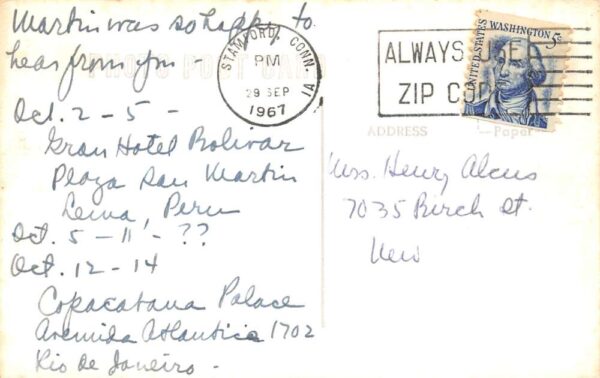 Martin was so happy to
hear from you -
Oct. 2 - 5 -
Gran Hotel Bolivar
Plaza San Martin
Lima, Peru
Oct. 5 - 11 - ??
Oct. 12 - 14
Copacabana Palace
Avenida Atlantica 1702
Rio de Janeiro -
PHOTO POST CARD
STAMFORD, CONN.
PM
29 SEP
1967
1A
ALWAYS USE
ZIP CODE
UNITED STATES
WASHINGTON
5¢
ADDRESS
Paper
Mrs. Henry Alcus
7035 Birch St.
New